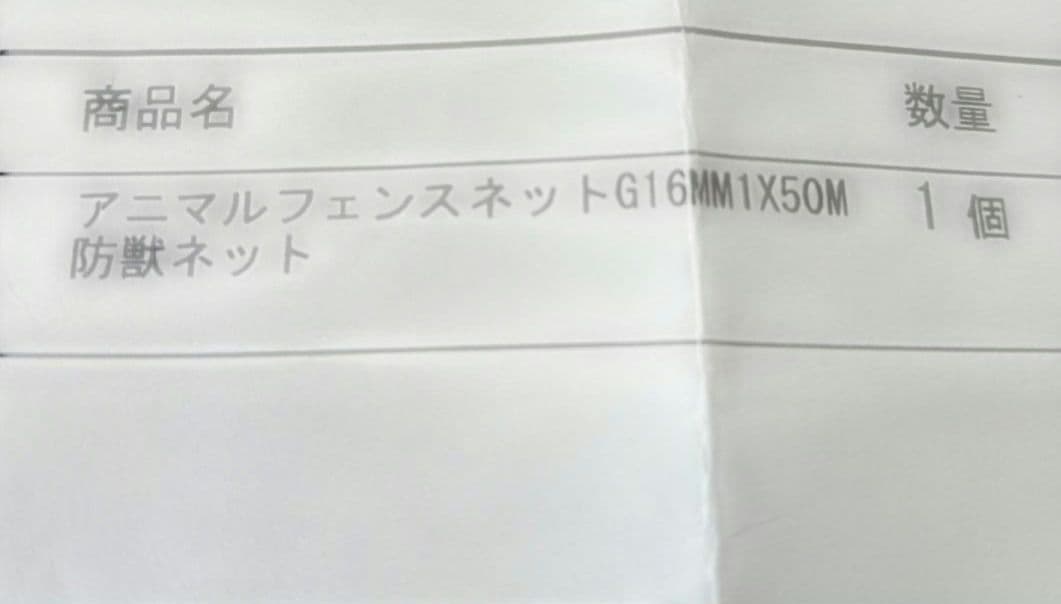 商品名 数量
アニマルフェンスネットG16MM1X50M 1個
防獣ネット